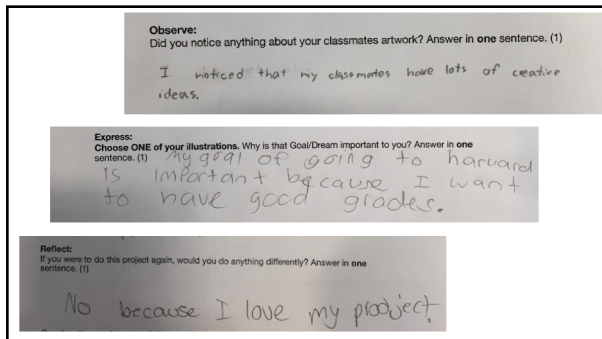 Observe:
Did you notice anything about your classmates artwork? Answer in one sentence. (1)
I noticed that my classmates have lots of creative
ideas.
Express:
Choose ONE of your illustrations. Why is that Goal/Dream important to you? Answer in one
sentence. (1) My goal of going to harvard
is important because I want
to have good grades.
Reflect:
If you were to do this project again, would you do anything differently? Answer in one
sentence. (1)
No because I love my prodject.